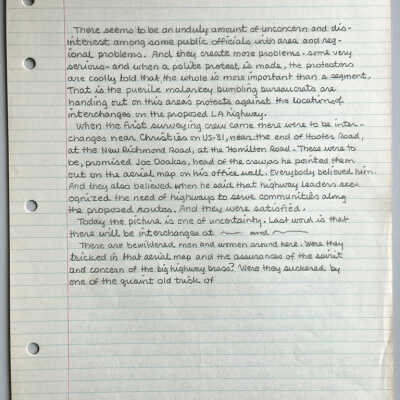 There seems to be an unduly amount of unconcern and dis-
interest among some public officials with area and reg-
ional problems. And they create more problems - some very
serious - and when a polite protest is made, the protestors
are coolly told that the whole is more important than a segment.
That is the puerile malarkey bumbling bureaucrats are
handing out on this areas protests against the location of
interchanges on the proposed LA highway.
When the first surveying crew came there were to be inter-
changes near Christies on US-31, near the end of Hooles Road,
at the New Richmond Road, at the Hamilton Road. These were to
be, promised Joe Doakes, head of the crew as he pointed them
out on the aerial map on his office wall. Everybody believed him.
And they also believed when he said that highway leaders rec-
ognized the need of highways to serve communities along
the proposed routes. And they were satisfied.
Today the picture is one of uncertainty. Last word is that
there will be interchanges at — and —
There are bewildered men and women around here. Were they
tricked in that aerial map and the assurances of the spirit
and concern of the big highway brass? Were they suckered by
one of the quaint old trick of